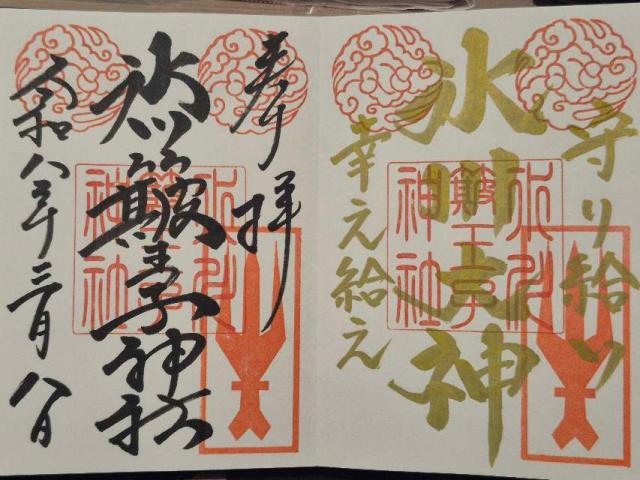 守り給い
氷川大神
幸え給え
氷川
簸王子
神社
奉拝
氷川簸王子神社
令和八年三月八日
氷川
簸王子
神社